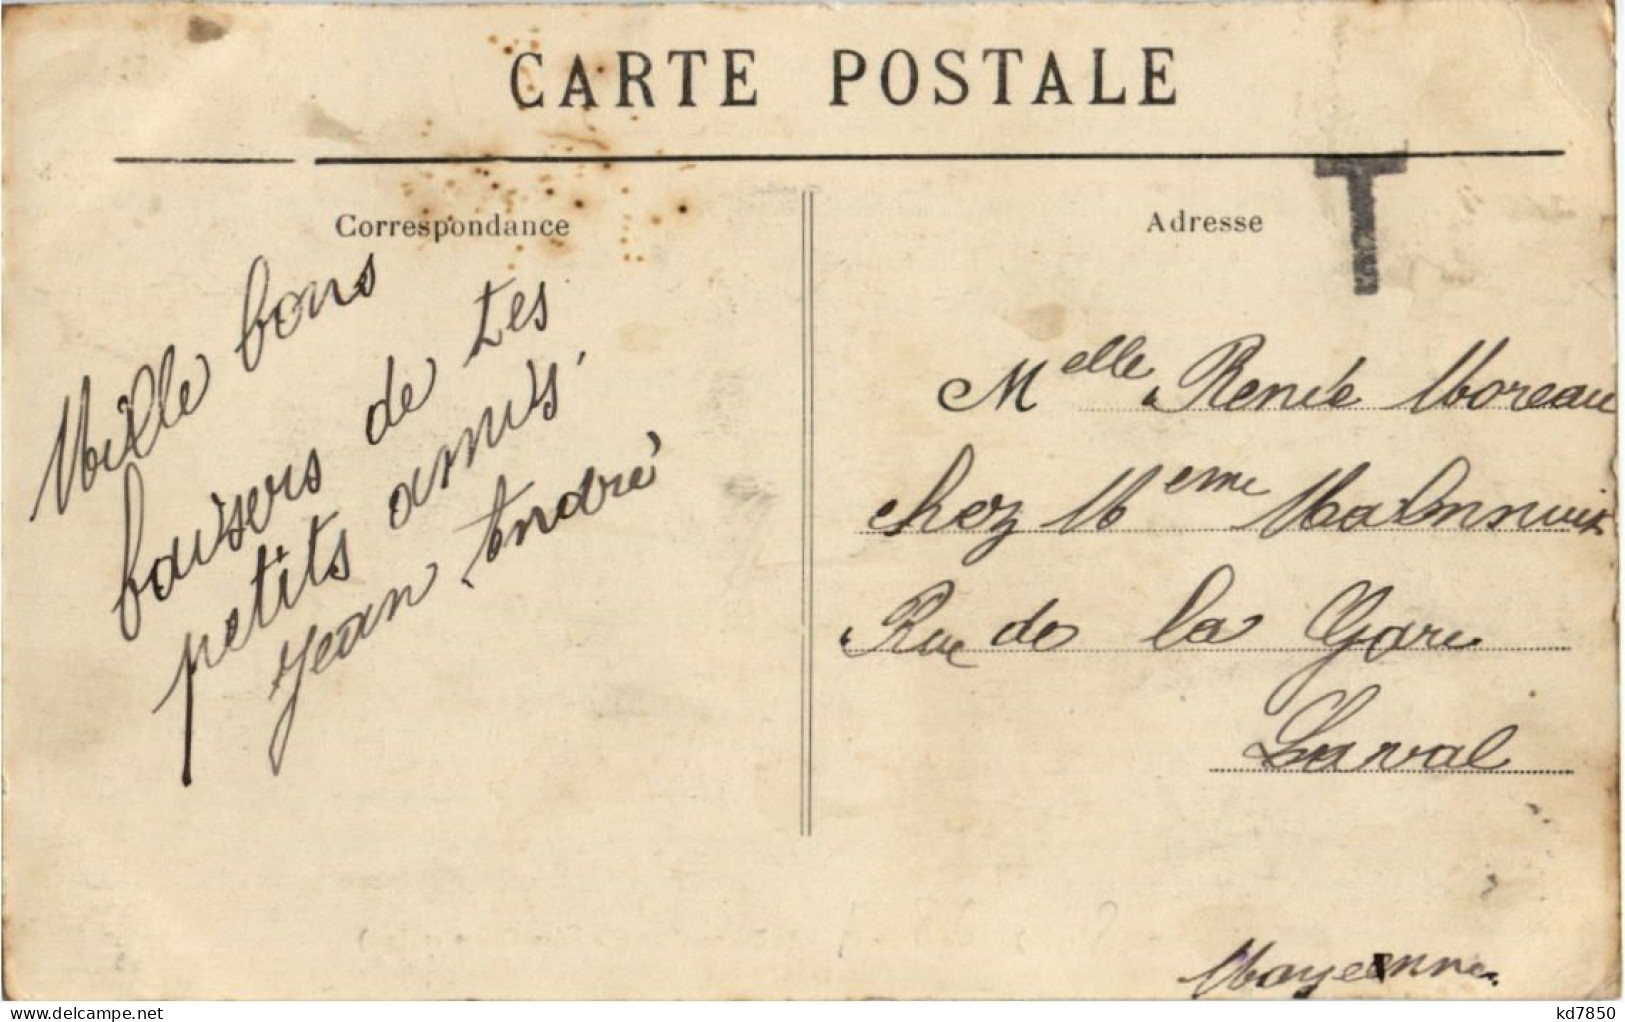 CARTE POSTALE
T
Correspondance
Mille bons
baisers de tes
petits amis.
Jean André
Adresse
Melle Renée Moreau
chez Meme
Rue de la Gare
Laval
Mayenne
delcampe.net
kd7850